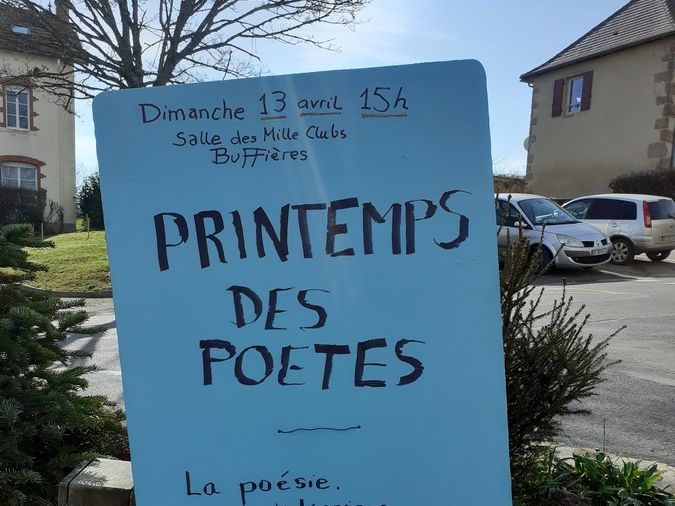 Dimanche 13 avril 15h
Salle des Mille Clubs
Buffières
PRINTEMPS
DES
POETES
La poésie.